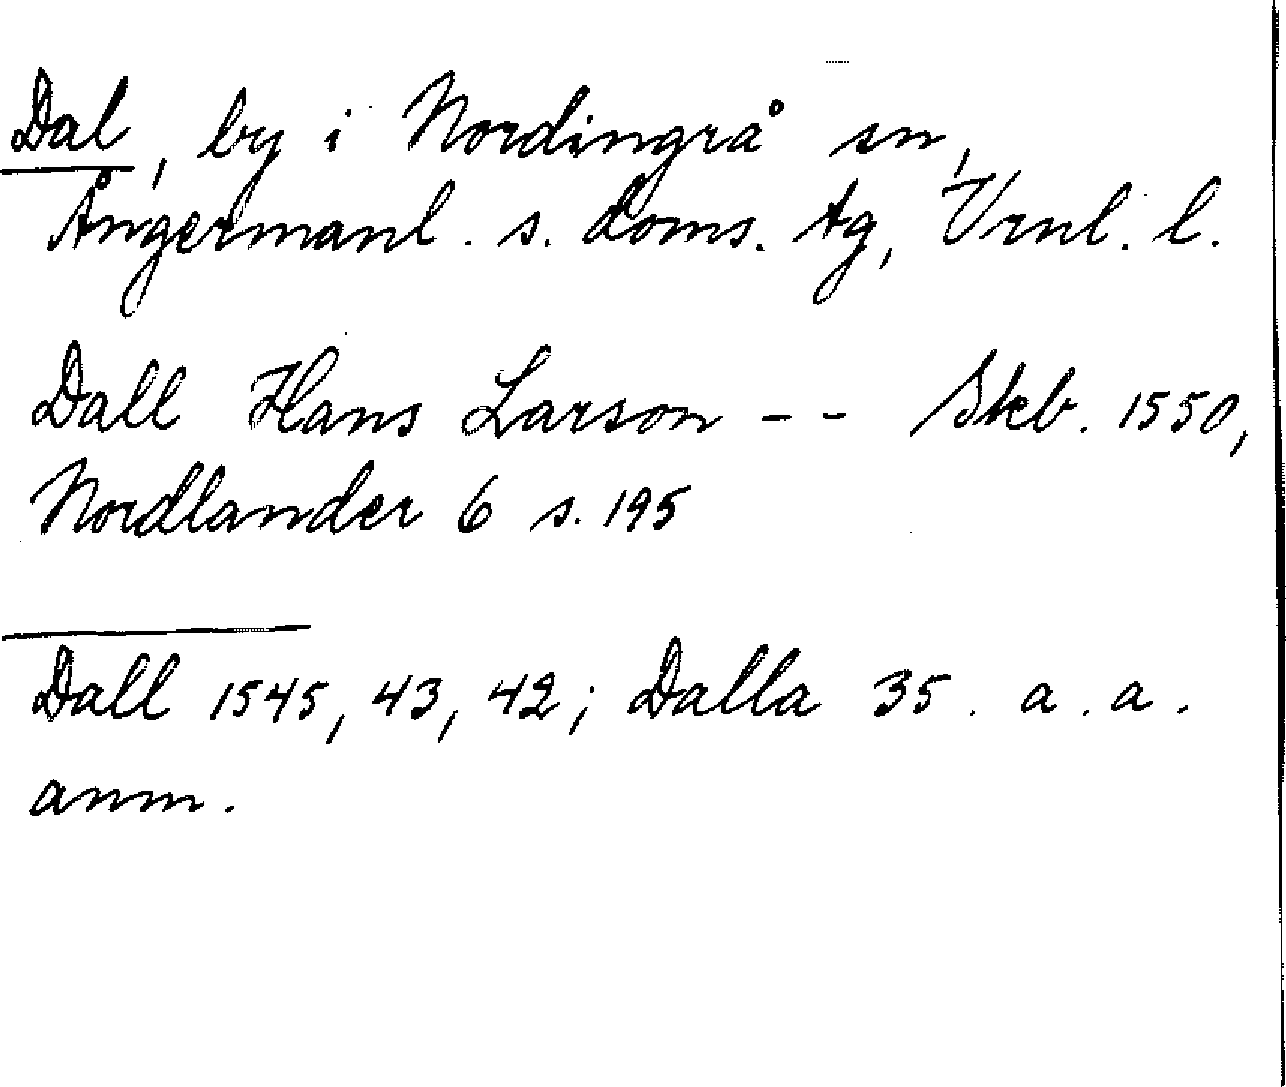 Dal, by i Nordingrå sn,
Ångermanl. s. doms. tg, Vrnl. l.
Dall Hans Larson -- Skb. 1550,
Nordlander 6 s. 195
Dall 1545, 43, 42; Dalla 35. a. a.
anm.